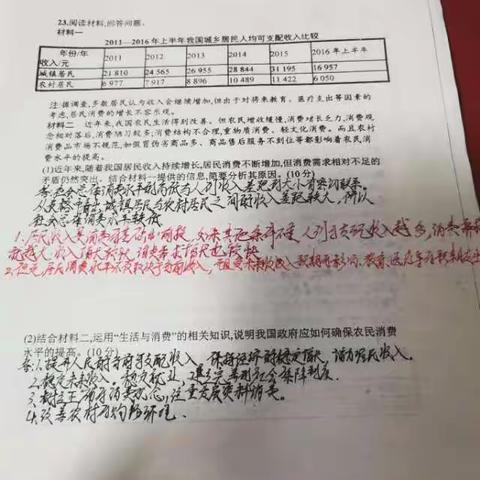 23.阅读材料,回答问题。
材料一
2011—2016年上半年我国城乡居民人均可支配收入比较
年份/年 收入/元 2011 2012 2013 2014 2015 2016年上半年
城镇居民 21 810 24 565 26 955 28 844 31 195 16 957
农村居民 6 977 7 917 8 896 10 489 11 422 6 050
注:据调查,多数居民认为收入会继续增加,但出于对将来教育、医疗支出等因素的
考虑,居民消费的增长不容乐观。
材料二 近年来,我国农民生活得到改善。但农民增收缓慢,消费增长乏力,消费观
念相对落后,消费陋习较多;消费结构不合理,重物质消费、轻文化消费。而且农村
消费品市场不规范,如假冒伪劣商品多、商品售后服务不到位等都影响着农民消
费水平的提高。
(1)近年来,随着我国居民收入持续增长,居民消费不断增加,但消费需求相对不足的
矛盾仍然突出。结合材料一提供的信息,简要分析其原因。(10分)
社会总体消费水平的高低与人们收入差距的大小有密切联系。
从表格中看出城镇居民与农村居民之间的收入差距较大,所以
社会总体消费水平较低
1.居民收入是消费的基础和前提,如果其他条件不变,人们可支配收入越多,消费
收入增长较快,消费需求增长也较快
2.但是,居民消费水平不仅取决于当前收入,而且受未来收入预期的影响,教育、医疗等
(2)结合材料二,运用“生活与消费”的相关知识,说明我国政府应如何确保农民消费
水平的提高。(10分)
答:1.提升人民的可支配收入,保持经济的稳定增长,增加居民收入。
2.稳定未来收入,稳定就业,建立完善的社会保障制度。
3.
4.改善农村的市场环境